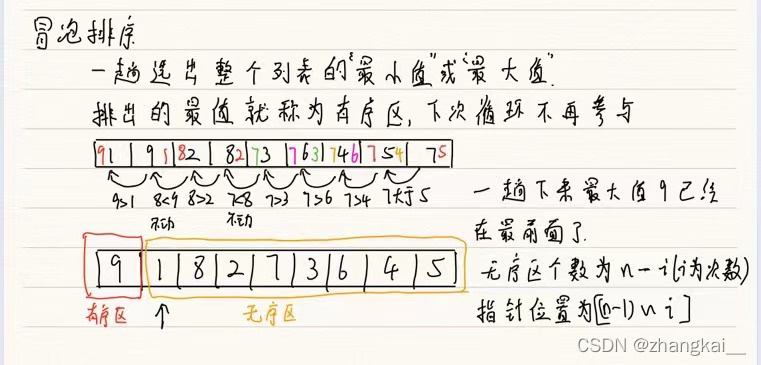 冒泡排序
一趟选出整个列表的"最小值"或"最大值".
排出的最值就称为有序区,下次循环不再参与
91 | 9 1 | 82 | 82 | 73 | 763 | 746 | 754 | 75
9>1 8<9 8>2 7<8 7>3 7>6 7>4 7大于5
不动 不动
一趟下来最大值9已经
在最前面了.
9 | 1 | 8 | 2 | 7 | 3 | 6 | 4 | 5
无序区个数为n-i(i为次数)
有序区 ↑ 无序区
指针位置为[(n-1) ~ i]
CSDN @zhangkai__